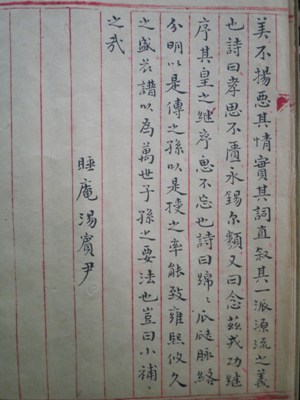 美不揚惡其情實其詞直敘其一派源流之義
也詩曰孝思不匱永錫尔類又曰念茲戎功繼
序其皇之继序思不忘也詩曰綿〻瓜瓞脉絡
分明以是傳之孫以是授之率能致雍熙攸久
之盛若譜以為萬世子孫之要法也豈曰小補
之哉
睡庵湯賓尹